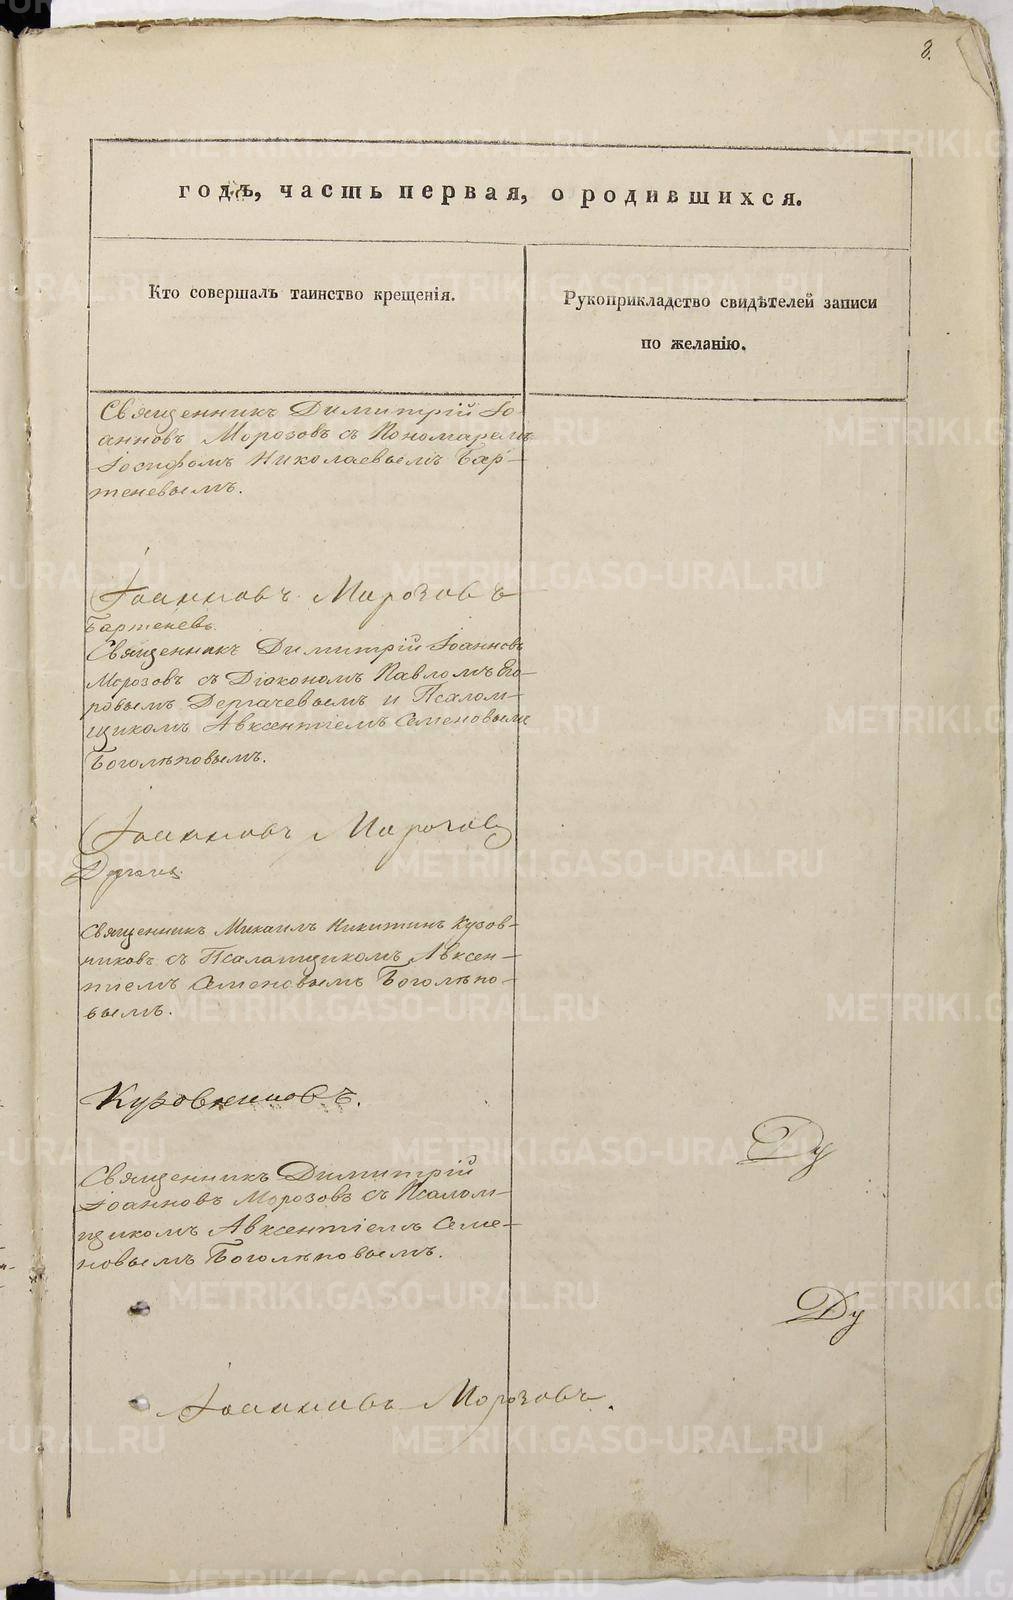 8.
годъ, часть первая, о родившихся.
Кто совершалъ таинство крещенія.
Рукоприкладство свидѣтелей записи
по желанію.
Священникъ Димитрій Іо
анновъ Морозовъ съ Пономаремъ
Іосифомъ Николаевымъ Бар-
теневымъ.
Іоанновъ Морозовъ
Бартеневъ.
Священникъ Димитрій Іоанновъ
Морозовъ съ Діакономъ Павломъ Его-
ровымъ Дергачевымъ и Псалом-
щикомъ Авксентіемъ Семеновымъ
Боголѣповымъ.
Іоанновъ Морозовъ
Священникъ Михаилъ Никитинъ Кузов-
никовъ съ Псаломщикомъ Авксен-
тіемъ Семеновымъ Боголѣпо-
вымъ.
Кузовниковъ.
Ду
Священникъ Димитрій
Іоанновъ Морозовъ съ Псалом-
щикомъ Авксентіемъ Семе-
новымъ Боголѣповымъ.
Ду
Іоанновъ Морозовъ.
METRIKI.GASO-URAL.RU